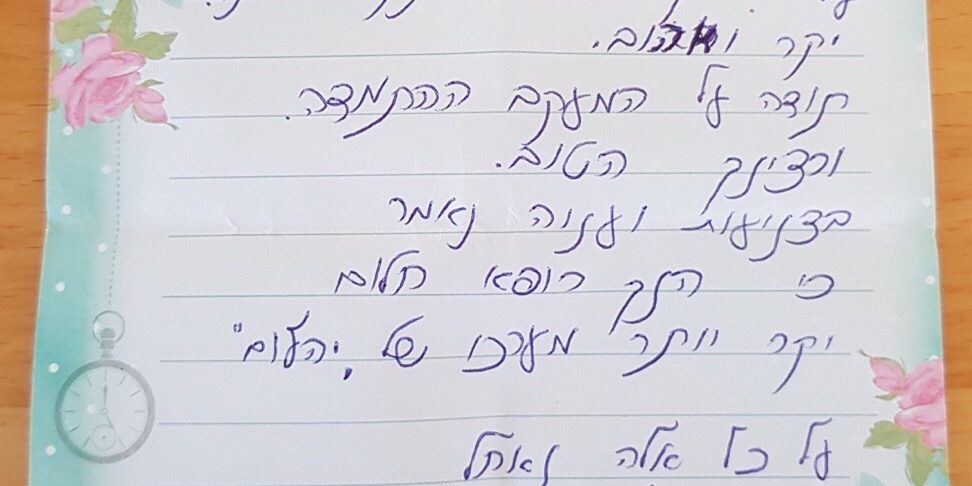 יקר
תודה על המעקב ההתמדה.
ורצינך הטוב.
בצניעות וענוה נאמר
כי הנך רופא חלום
יקר יותר מערכו של יהלום"
על כל אלה נאחל